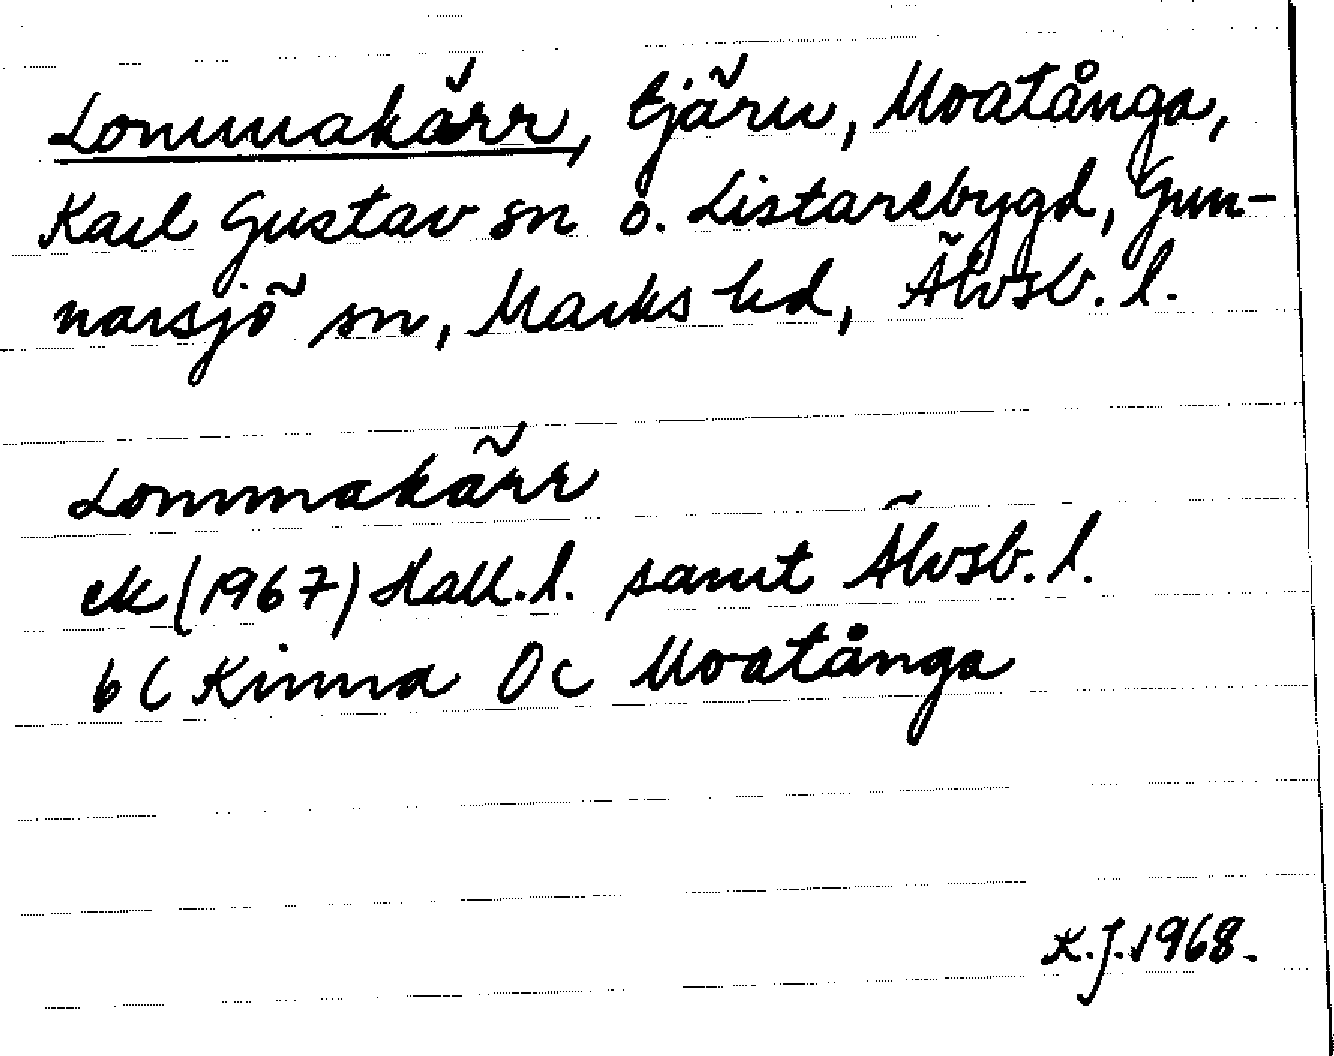 Lommakärr, tjärn, Moatånga,
Karl Gustav sn o. Listarebygd, Gun-
narsjö sn, Marks hd, Älvsb. l.
Lommakärr
ek (1967) Hall. l. samt Älvsb. l.
6 C Kinna 0 c Moatånga
K.J. 1968.